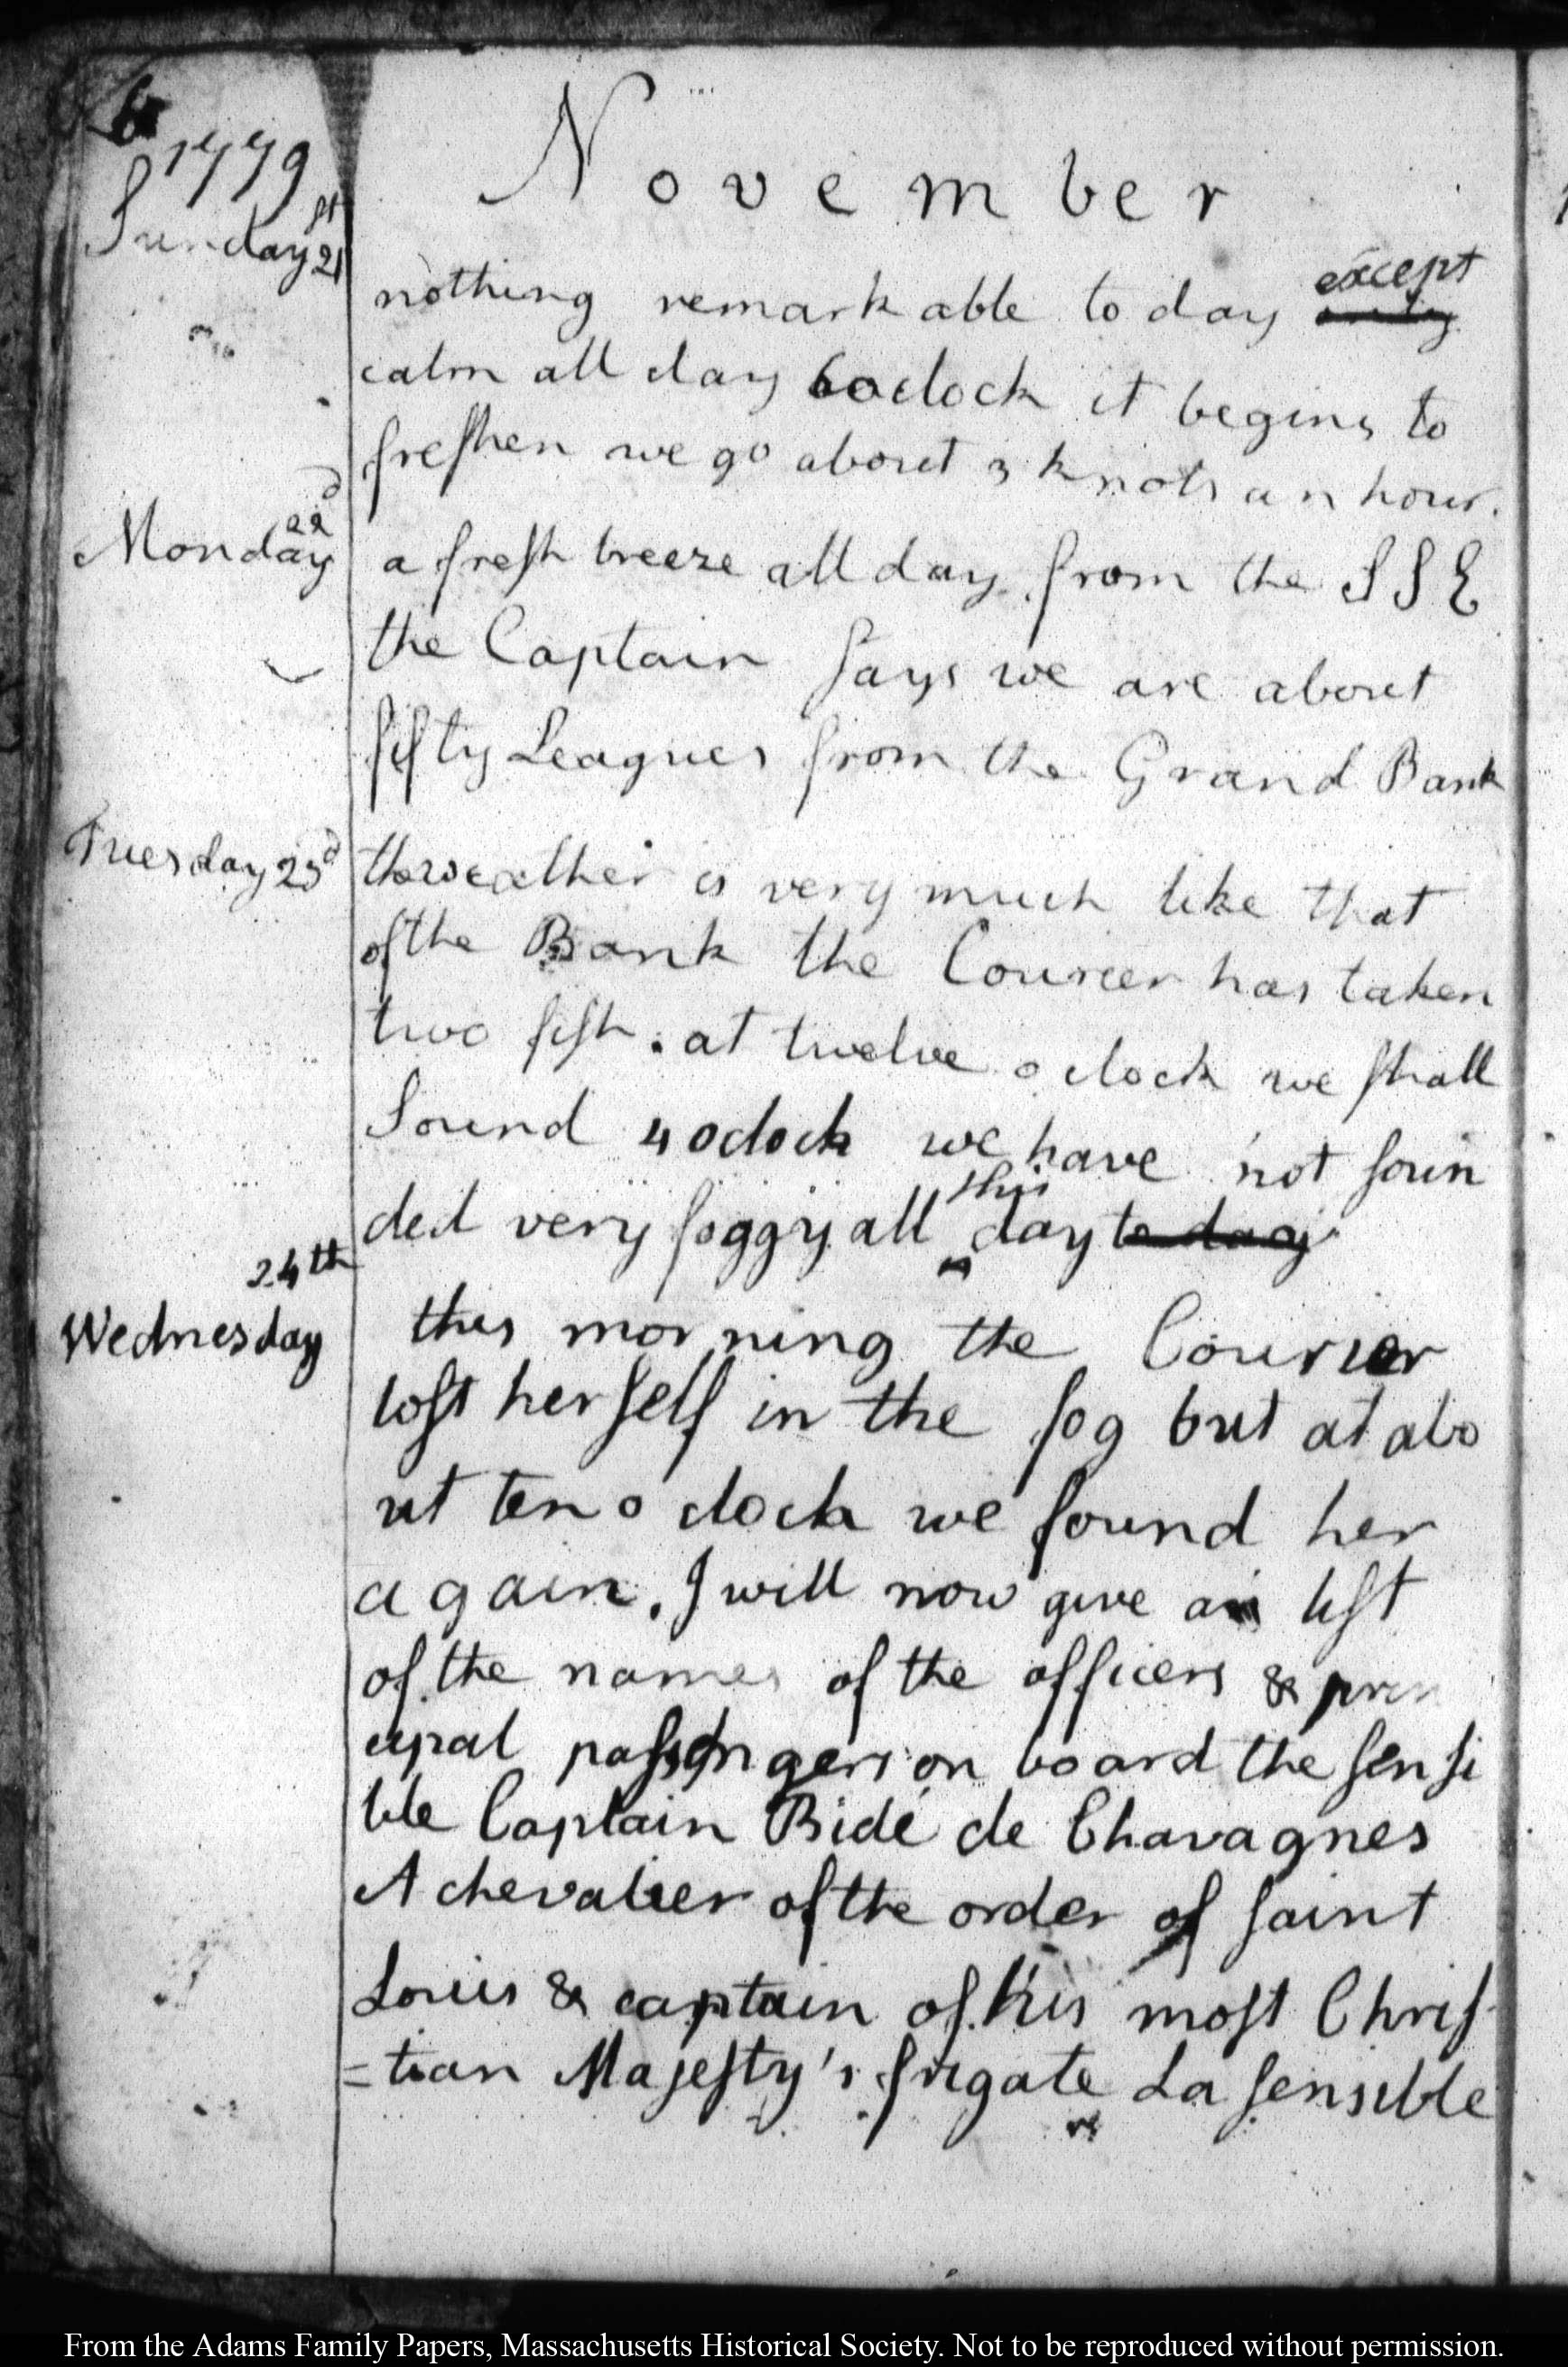 6
1779
November
Sunday 21st
nothing remarkable to day except only
calm all day 6 oclock it begins to
freshen we go about 3 knots an hour.
Monday 22d
a fresh breeze all day from the S S E
the Captain Says we are about
fifty Leagues from the Grand Bank
Tuesday 23d
the weather is very much like that
of the Bank the Courier has taken
two fish. at twelve o clock we shall
Sound 4 oclock we have not soun
ded very foggy all this day to day
24th
Wednesday
this morning the Courier
lost herself in the fog but at abo
ut ten o clock we found her
again. I will now give a list
of the names of the officers & prin
cipal passengers on board the sensi
ble Captain Bidé de Chavagnes
A chevalier of the order of saint
Louis & captain of his most Chris-
=tian Majesty's frigate La sensible
From the Adams Family Papers, Massachusetts Historical Society. Not to be reproduced without permission.